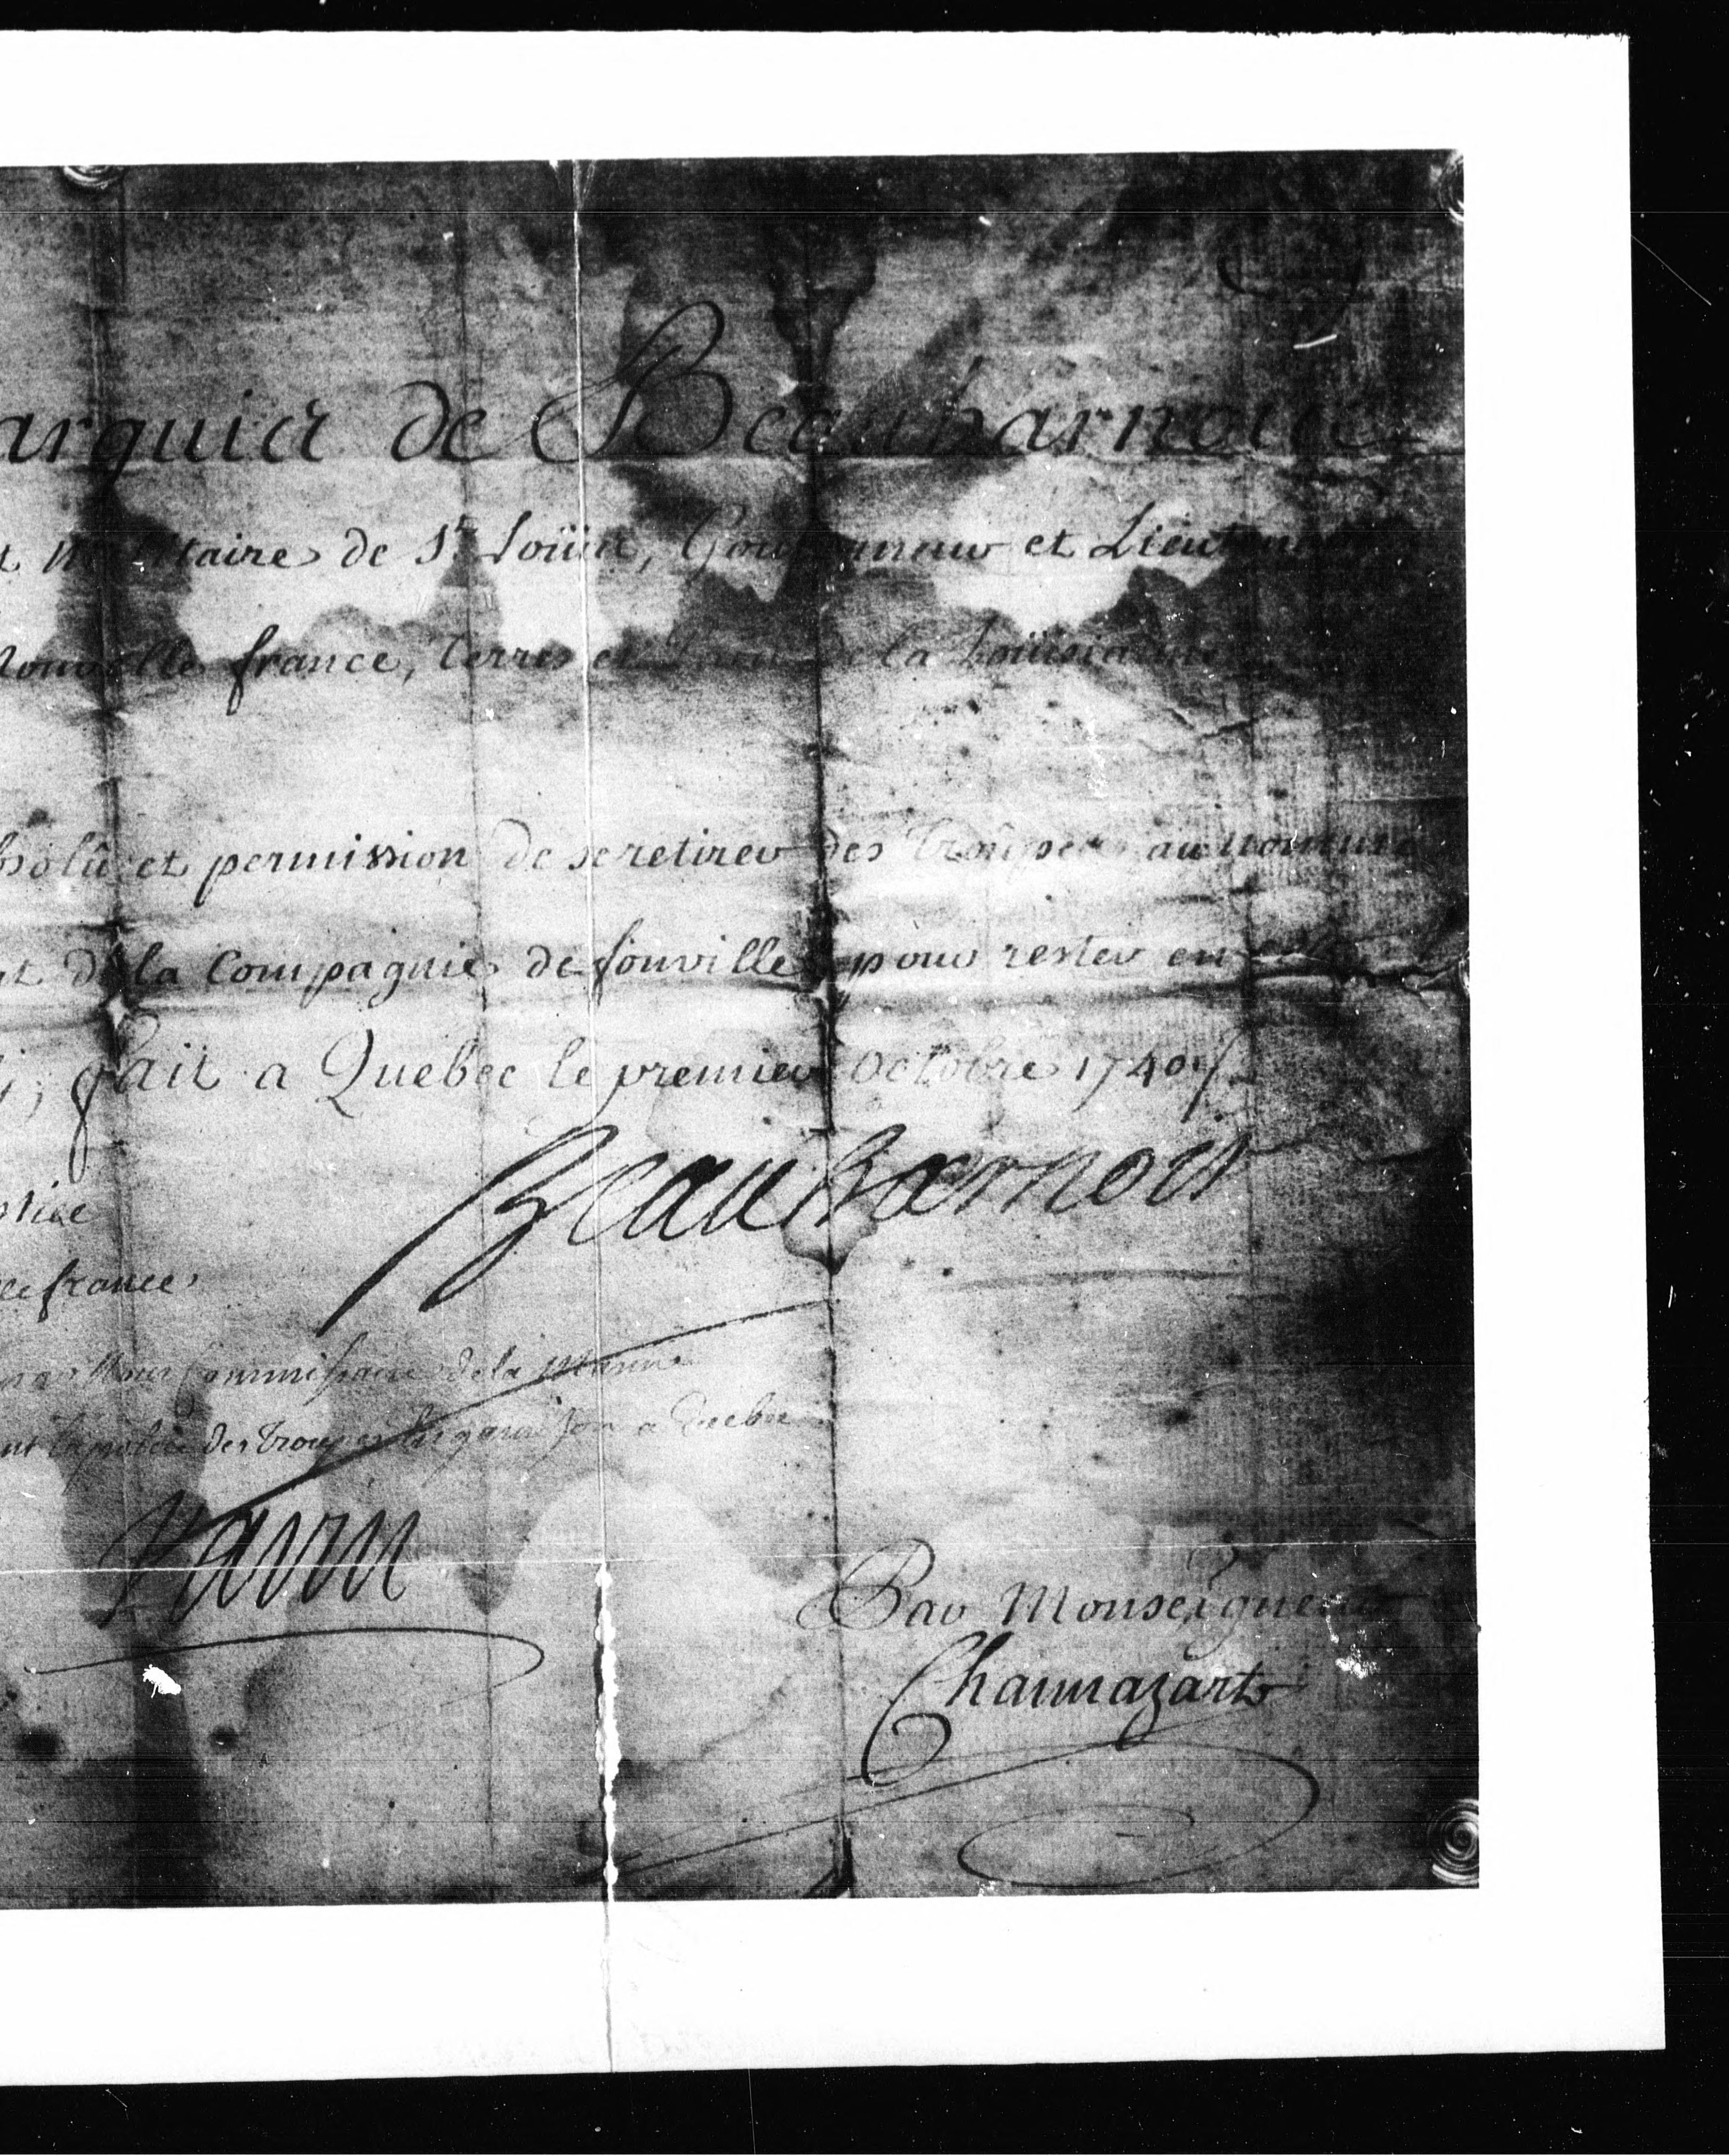 arquis de Beauharnois
Militaire de St. Loüis, Gouverneur et Lieutenant
Nouvelle france, terres et de la Loüisianne
bsolû et permission de se retirer des Troûpes au nommé
de la Compagnie de fonville pour rester en
fait a Quebec le premier Octobre 1740 ./.
Beauharnois
stice
lle france
Commissaire de la Marine
la police des Troupes en garnison a Quebec
Varin
Par Monseigneur
Chaumazart